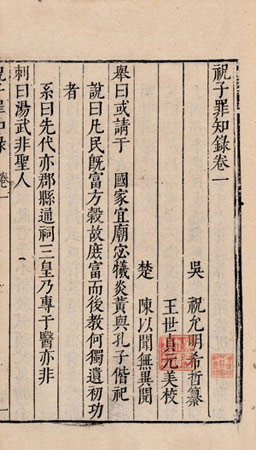 祝子罪知錄卷一
吳 祝允明希哲纂
王世貞元美校
楚 陳以聞無異閱
舉曰或請于 國家宜廟宓犧炎黃與孔子偕祀
說曰凡民旣富方穀故庶富而後教何獨遺初功
者
系曰先代亦郡縣通祠三皇乃專于醫亦非
刺曰湯武非聖人
祝子罪知錄 卷一